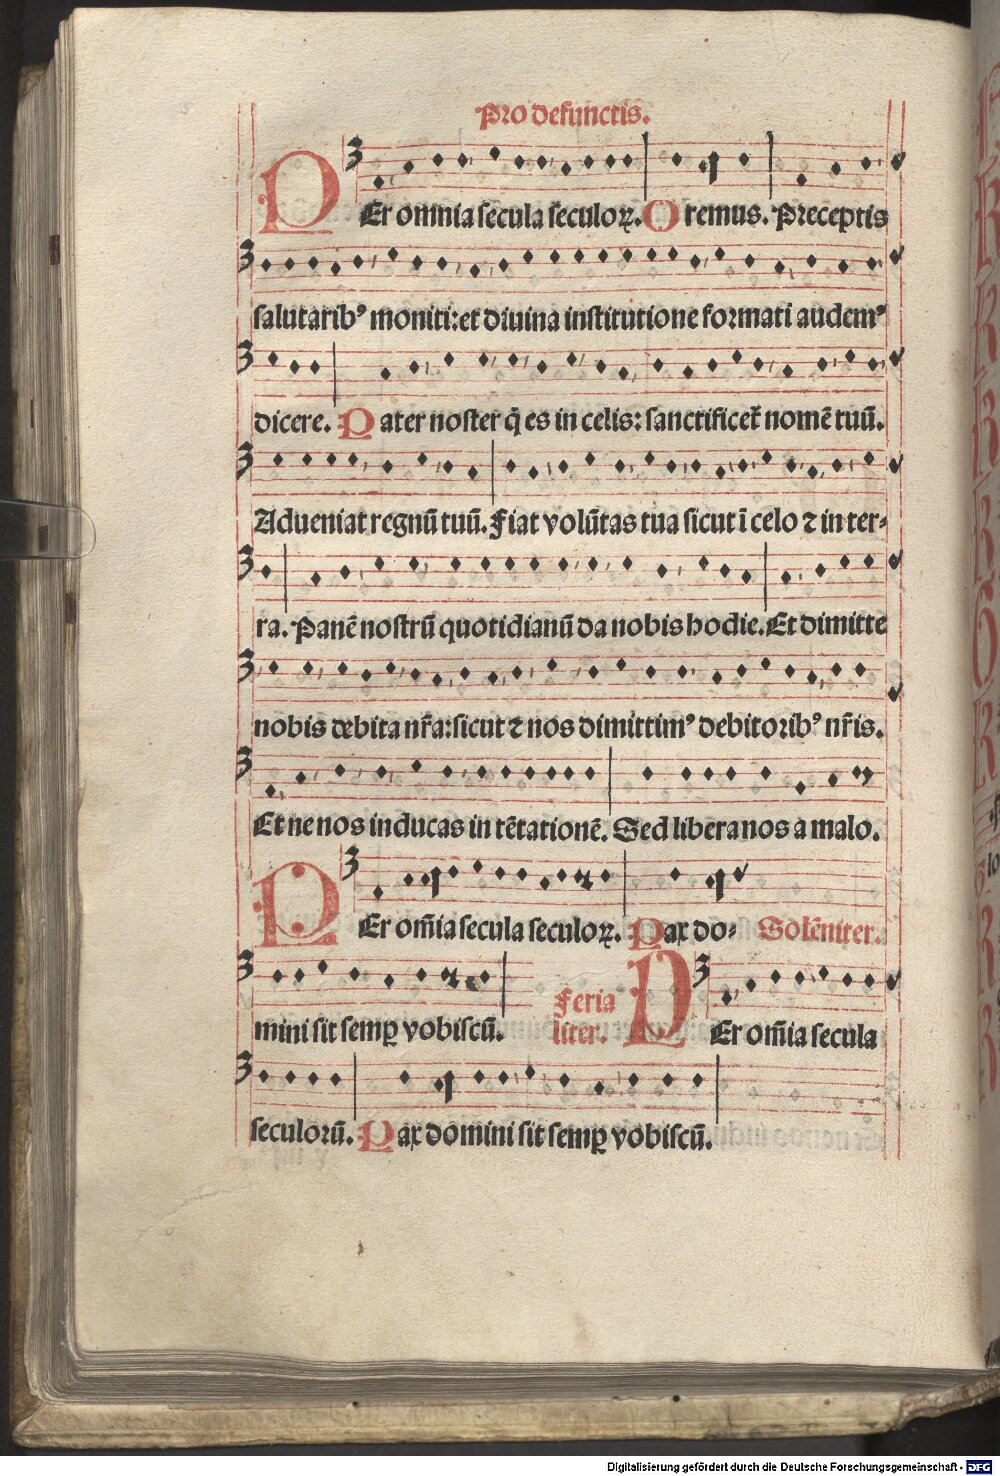 Pro defunctis.
PEr omnia secula seculoꝝ. Oremus. Preceptis
salutarib⁹ moniti: et diuina institutione formati audem⁹
dicere. Pater noster q̄ es in celis: sanctificet̄ nomē tuū.
Adueniat regnū tuū. Fiat volūtas tua sicut ī celo ⁊ in ter⸗
ra. Panē nostrū quotidianū da nobis hodie. Et dimitte
nobis debita nr̄a: sicut ⁊ nos dimittim⁹ debitorib⁹ nr̄is.
Et ne nos inducas in tētationē. Sed libera nos a malo.
PEr om̄ia secula seculoꝝ. Pax do⸗ Solēniter.
mini sit semꝑ vobiscū. Feria liter. PEr om̄ia secula
seculorū. Pax domini sit semꝑ vobiscū.
Digitalisierung gefördert durch die Deutsche Forschungsgemeinschaft - DFG